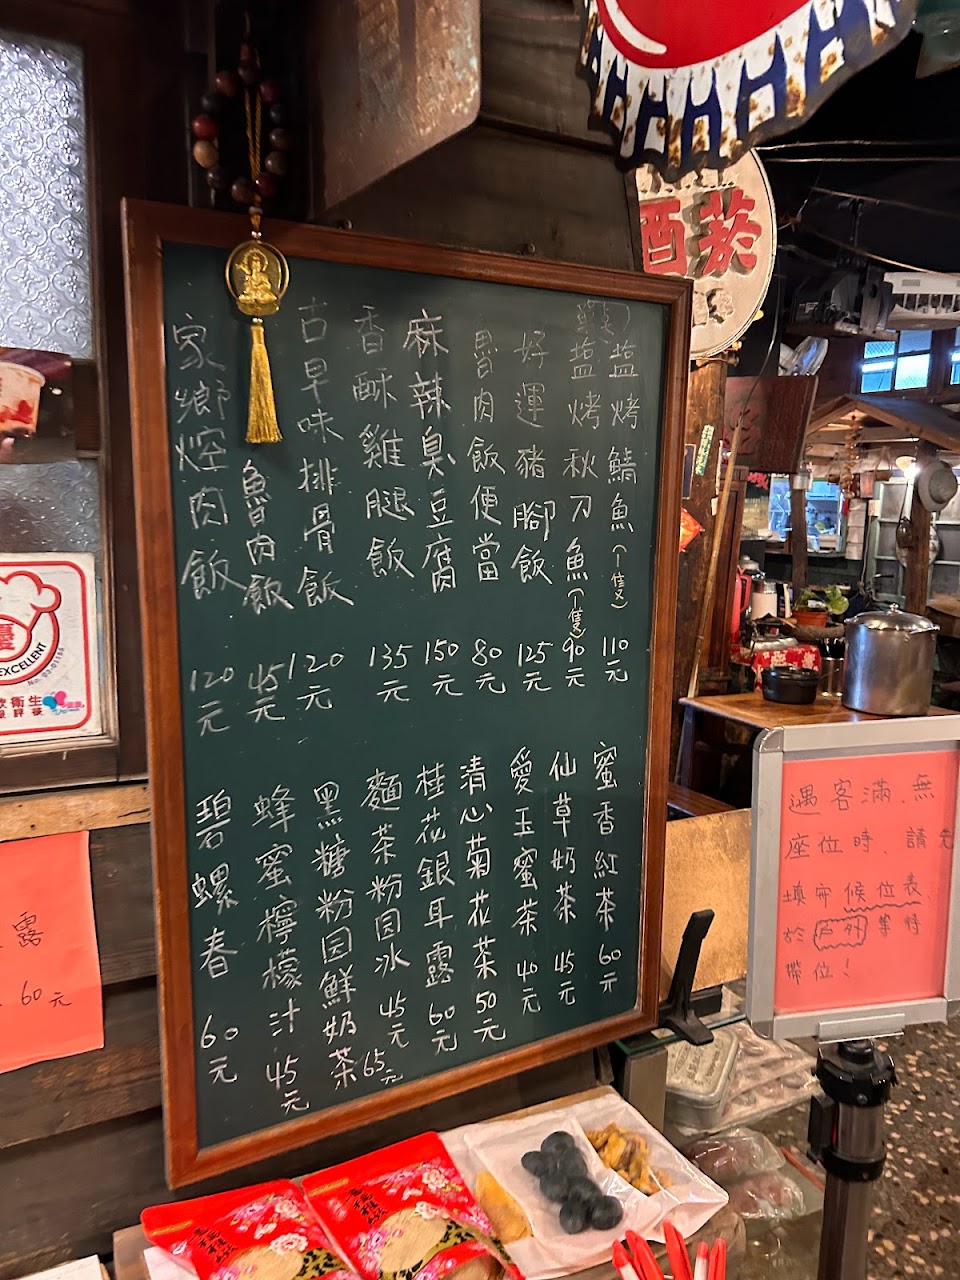 塩烤鯖魚(1隻) 110元
塩烤秋刀魚(1隻) 90元
好運豬腳飯 125元
魯肉飯便當 80元
麻辣臭豆腐 150元
香酥雞腿飯 135元
古早味排骨飯 120元
魯肉飯 45元
家鄉焢肉飯 120元
蜜香紅茶 60元
仙草奶茶 45元
愛玉蜜茶 40元
清心菊花茶 50元
桂花銀耳露 60元
麵茶粉园冰 45元
黑糖粉园鮮奶茶 65元
蜂蜜檸檬汁 45元
碧螺春 60元
菸酒
遇客滿、無
座位時、請先
填写候位表
於戶外等待
帶位!
優
EXCELLENT
衛生
露
60元